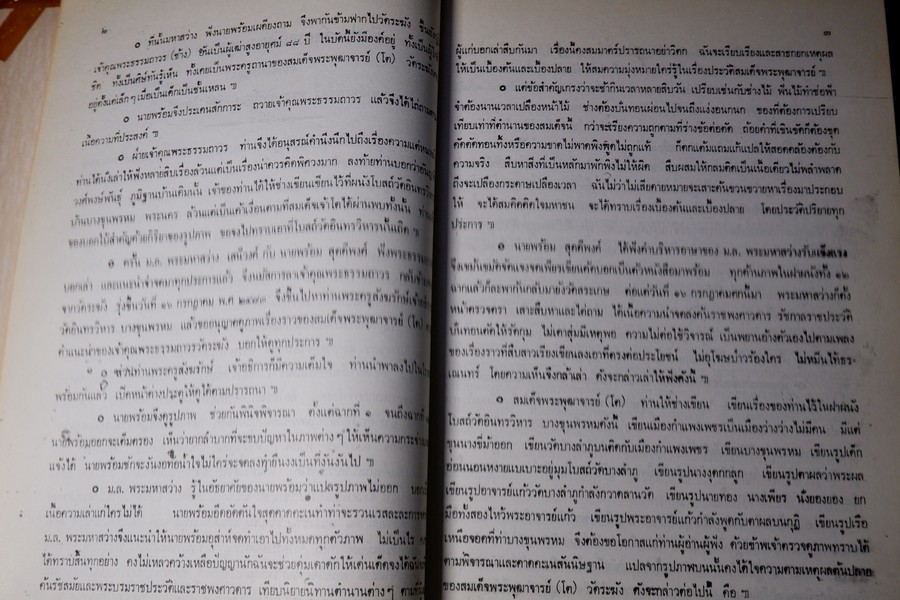 ๒
๏ ทีนั้นมหาสว่าง ฟังนายพร้อมเผดียงถาม จึงพากันข้ามฟากไปวัดระฆัง ขึ้น
เจ้าคุณพระธรรมถาวร (ช้าง) อันเป็นผู้เฒ่าสูงอายุศม์ ๘๘ ปี ในบัดนี้ยังมีองค์อยู่ ทั้งเป็น
ชิด ทั้งเป็นศิษย์ทันรู้เห็น ทั้งเคยเป็นพระครูถานาของสมเด็จพระพุฒาจารย์ (โต) วัดระฆัง
อยู่ตั้งแต่เล็กๆ เมื่อเป็นเด็กเป็นชั้นเหลน ๚
๏ นายพร้อมจึงประเคนสักการะ ถวายเจ้าคุณพระธรรมถาวร แล้วจึงได้ไต่ถาม
เนื้อความที่ประสงค์ ๚
๏ ฝ่ายเจ้าคุณพระธรรมถาวร ท่านจึงได้อนุสรณ์คำนึงนึกไปถึงเรื่องความแต่หนหลัง
ท่านได้นึงเล่าให้ฟังหลายสิบเรื่องล้วนแต่เป็นเรื่องน่าควรคิดพิศวงมาก ลงท้ายท่านบอกว่า
วงศ์พงษ์พันธุ์ ภูมิฐานบ้านเดิมนั้น เจ้าของท่านได้ให้ช่างเขียนเขียนไว้ที่ผนังโบสถ์วัดอินทรวิหาร
บางขุนพรหม พระนคร ล้วนแต่เป็นเค้าเงื่อนตามที่สมเด็จเจ้าโตได้ผ่านพบทั้งนั้น
ของบอกใบ้สำคัญด้วยกิริยาของรูปภาพ ขอจงไปทราบเอาที่โบสถ์วัดอินทรวิหารนั้นเถิด ๚
๏ ครั้น ม.ล. พระมหาสว่าง เสนีวงศ์ กับ นายพร้อม สุดดีพงศ์ ฟังพระธรรมถาวร
บอกเล่า และแนะนำจำจดมาทุกประการแล้ว จึงนมัสการลาเจ้าคุณพระธรรมถาวร กลับข้าม
จากวัดระฆัง รุ่งขึ้นวันที่ ๑๖ กรกฎาคม พ.ศ ๒๔๗๓ จึงขึ้นไปหาท่านพระครูสังฆรักษ์
วัดอินทรวิหาร บางขุนพรหม แล้วขออนุญาตดูภาพเรื่องราวของสมเด็จพระพุฒาจารย์ (โต)
คำแนะนำของเจ้าคุณพระธรรมถาวรวัดระฆัง บอกให้ดูทุกประการ ๚
๏ ส่วนท่านพระครูสังฆรักษ์ เจ้าอธิการก็มีความเต็มใจ ท่านนำพาลงไปใน
พร้อมกันแล้ว เปิดหน้าต่างประตูให้ดูได้ตามปรารถนา ๚
๏ นายพร้อมจึงดูรูปภาพ ช่วยกันพินิจพิจารณา ตั้งแต่ฉากที่ ๑ จนถึงฉากที่
นายพร้อมออกจะเต็มตรอง เห็นว่ายากลำบากที่จะขบปัญหาในภาพต่างๆ ให้เห็นความกระจ่าง
แจ้งได้ นายพร้อมชักจะงันงอท้อน้ำใจไม่ใคร่จะจดลงทำยืนงงเป็นที่งั่นงันไป ๚
๏ ม.ล. พระมหาสว่าง รู้ในอัธยาศัยของนายพร้อมว่าแปลรูปภาพไม่ออก
เนื้อความเล่าแก่ใครไม่ได้ นายพร้อมอึดอัดตันใจสุดคาดคะเนทำท่าจะรวนเรสละละ
ม.ล. พระมหาสว่างจึงแนะนำให้นายพร้อมอุส่าห์จดทำเอาไปทั้งหมดทุกตัวภาพ ไม่เป็นไร
ได้ทราบสิ้นทุกอย่าง คงไม่เหลวคว้างเหลือปัญญานักฉันจะช่วยคุ้ยเค่าดักให้เด่นเด็ดจงได้
ค้นรัชสมัยและพระบรมราชประวัติและราชพงศาวดาร เทียบนิยายนิทานตำนานต่างๆ
๓
ผู้แก่บอกเล่าสืบกันมา เรื่องนี้คงสมมาตร์ปรารถนาอย่าวิตก ฉันจะเรียบเรียงและสาธกยกเหตุผล
ให้เป็นเบื้องต้นและเบื้องปลาย ให้สมความมุ่งหมายใคร่รู้ในเรื่องประวัติสมเด็จพระพุฒาจารย์ ๚
๏ แต่ข้อสำคัญเกรงว่าจะช้ากินเวลาหลายสิบวัน เปรียบเช่นกับช่างไม้ ฟันไม้ทำช่อฟ้า
จำต้องนานเวลาเปลืองหน้าไม้ ช่างต้องบั่นทอนผ่อนไปจนถึงแง่งอนกนก ของที่ต้องการเปรียบ
เทียบเท่าที่ตำนานของสมเด็จนี้ กว่าจะเรียงความถูกตามที่ร่างข้อต่อคัด ถ้อยคำที่เขินขัดก็ต้องขูด
คัดดัดทอนทั้งหรือความขาดไม่พาดพิงพูดไม่ถูกแท้ ก็ตกแต้มแถมแก้แปลให้สอดคล้องต้องกับ
ความจริง สืบหาสิ่งที่เป็นหลักมาพักพิงไม่ให้ผิด สืบผสมให้กลมติดเป็นเนื้อเดียวไม่พลำพลาด
ถึงจะเปลืองกระดาษเปลืองเวลา ฉันไม่ว่าไม่เสียดายหมายจะเสาะค้นขวนขวายหาเรื่องมาประกอบ
ให้ จะได้สมคิดติดใจมหาชน จะได้ทราบเรื่องเบื้องต้นและเบื้องปลาย โดยประวัติปริยายทุก
ประการ ๚
๏ นายพร้อม สุดดีพงศ์ ได้ฟังคำบริหารอาษาของ ม.ล. พระมหาสว่างรับแข็งแรง
จึงเขม้นขมัดขัดแขงจดเพียรเขียนคัดบอกเป็นตัวหนังสือมาพร้อม ทุกด้านภาพในฝาผนังทั้ง ๑๒
ฉากแล้วก็ละพากันกลับมายังวัดสระเกษ ต่อแต่วันที่ ๑๖ กรกฎาคมศกนี้มา พระมหาสว่างก็ตั้ง
หน้าตรวจตรา เสาะสืบหาและไต่ถาม ได้เนื้อความนำจดลงค้นราชพงศาวดาร รัชกาลราชประวัติ
บั่นทอนตัดให้รัดกุม ไม่เดาสุ่มมีเหตุพอ ความไม่ต่อใช้วิจารณ์ เป็นพยานอ้างตัวเองไปตามเพลง
ของเรื่องราวที่สืบสาวเรียงเขียนลงเอาที่ตรงต่อประโยชน์ ไม่อุโฆษบ่าวร้องใคร ไม่หมิ่นไห้ธร-
เณนทร์ โดยความเห็นจึงกล้าเล่า ดังจะกล่าวเล่าให้ฟังดังนี้ ๚
๏ สมเด็จพระพุฒาจารย์ (โต) ท่านให้ช่างเขียน เขียนเรื่องของท่านไว้ในฝาผนัง
โบสถ์วัดอินทรวิหาร บางขุนพรหมดังนี้ เขียนเมืองกำแพงเพชรเป็นเมืองว่างว่างไม่มีคน มีแต่
ขุนนางขี่ม้าออก เขียนวัดบางลำภูบนติดกับเมืองกำแพงเพชร เขียนบางขุนพรหม เขียนรูปเด็ก
อ่อนนอนหงายแบเบาะอยู่มุมโบสถ์วัดบางลำภู เขียนรูปนางงุดกกลูก เขียนรูปตาผลว่าพระผล
เขียนรูปอาจารย์แก้ววัดบางลำภูกำลังกวาดลานวัด เขียนรูปนายทอง นางเพียร นั่งยองยอง ยก
มือทั้งสองไหว้พระอาจารย์แก้ว เขียนรูปพระอาจารย์แก้วกำลังพูดกับตาผลบนกุฏิ เขียนรูปเรือ
เหนือจอดที่ท่าบางขุนพรหม จึงต้องขอโอกาสแก่ท่านผู้อ่านผู้ฟัง ด้วยข้าพเจ้าตรวจดูภาพทราบได้
ตามพิจารณาและคาดคะเนสันนิษฐาน แปลจากรูปภาพบนนั้นคงได้ใจความตามเหตุผลต้นปลาย
ของสมเด็จพระพุฒาจารย์ (โต) วัดระฆัง ดังจะกล่าวต่อไปนี้ คือ ๚